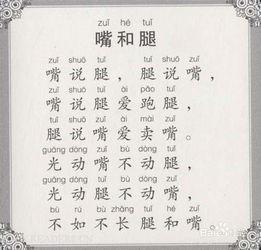 zuǐ hé tuǐ
嘴和腿
zuǐ shuō tuǐ tuǐ shuō zuǐ
嘴说腿，腿说嘴，
zuǐ shuō tuǐ ài pǎo tuǐ
嘴说腿爱跑腿，
tuǐ shuō zuǐ ài mài zuǐ
腿说嘴爱卖嘴。
guāng dòng zuǐ bù dòng tuǐ
光动嘴不动腿，
guāng dòng tuǐ bù dòng zuǐ
光动腿不动嘴，
bù rú bù zhǎng tuǐ hé zuǐ
不如不长腿和嘴